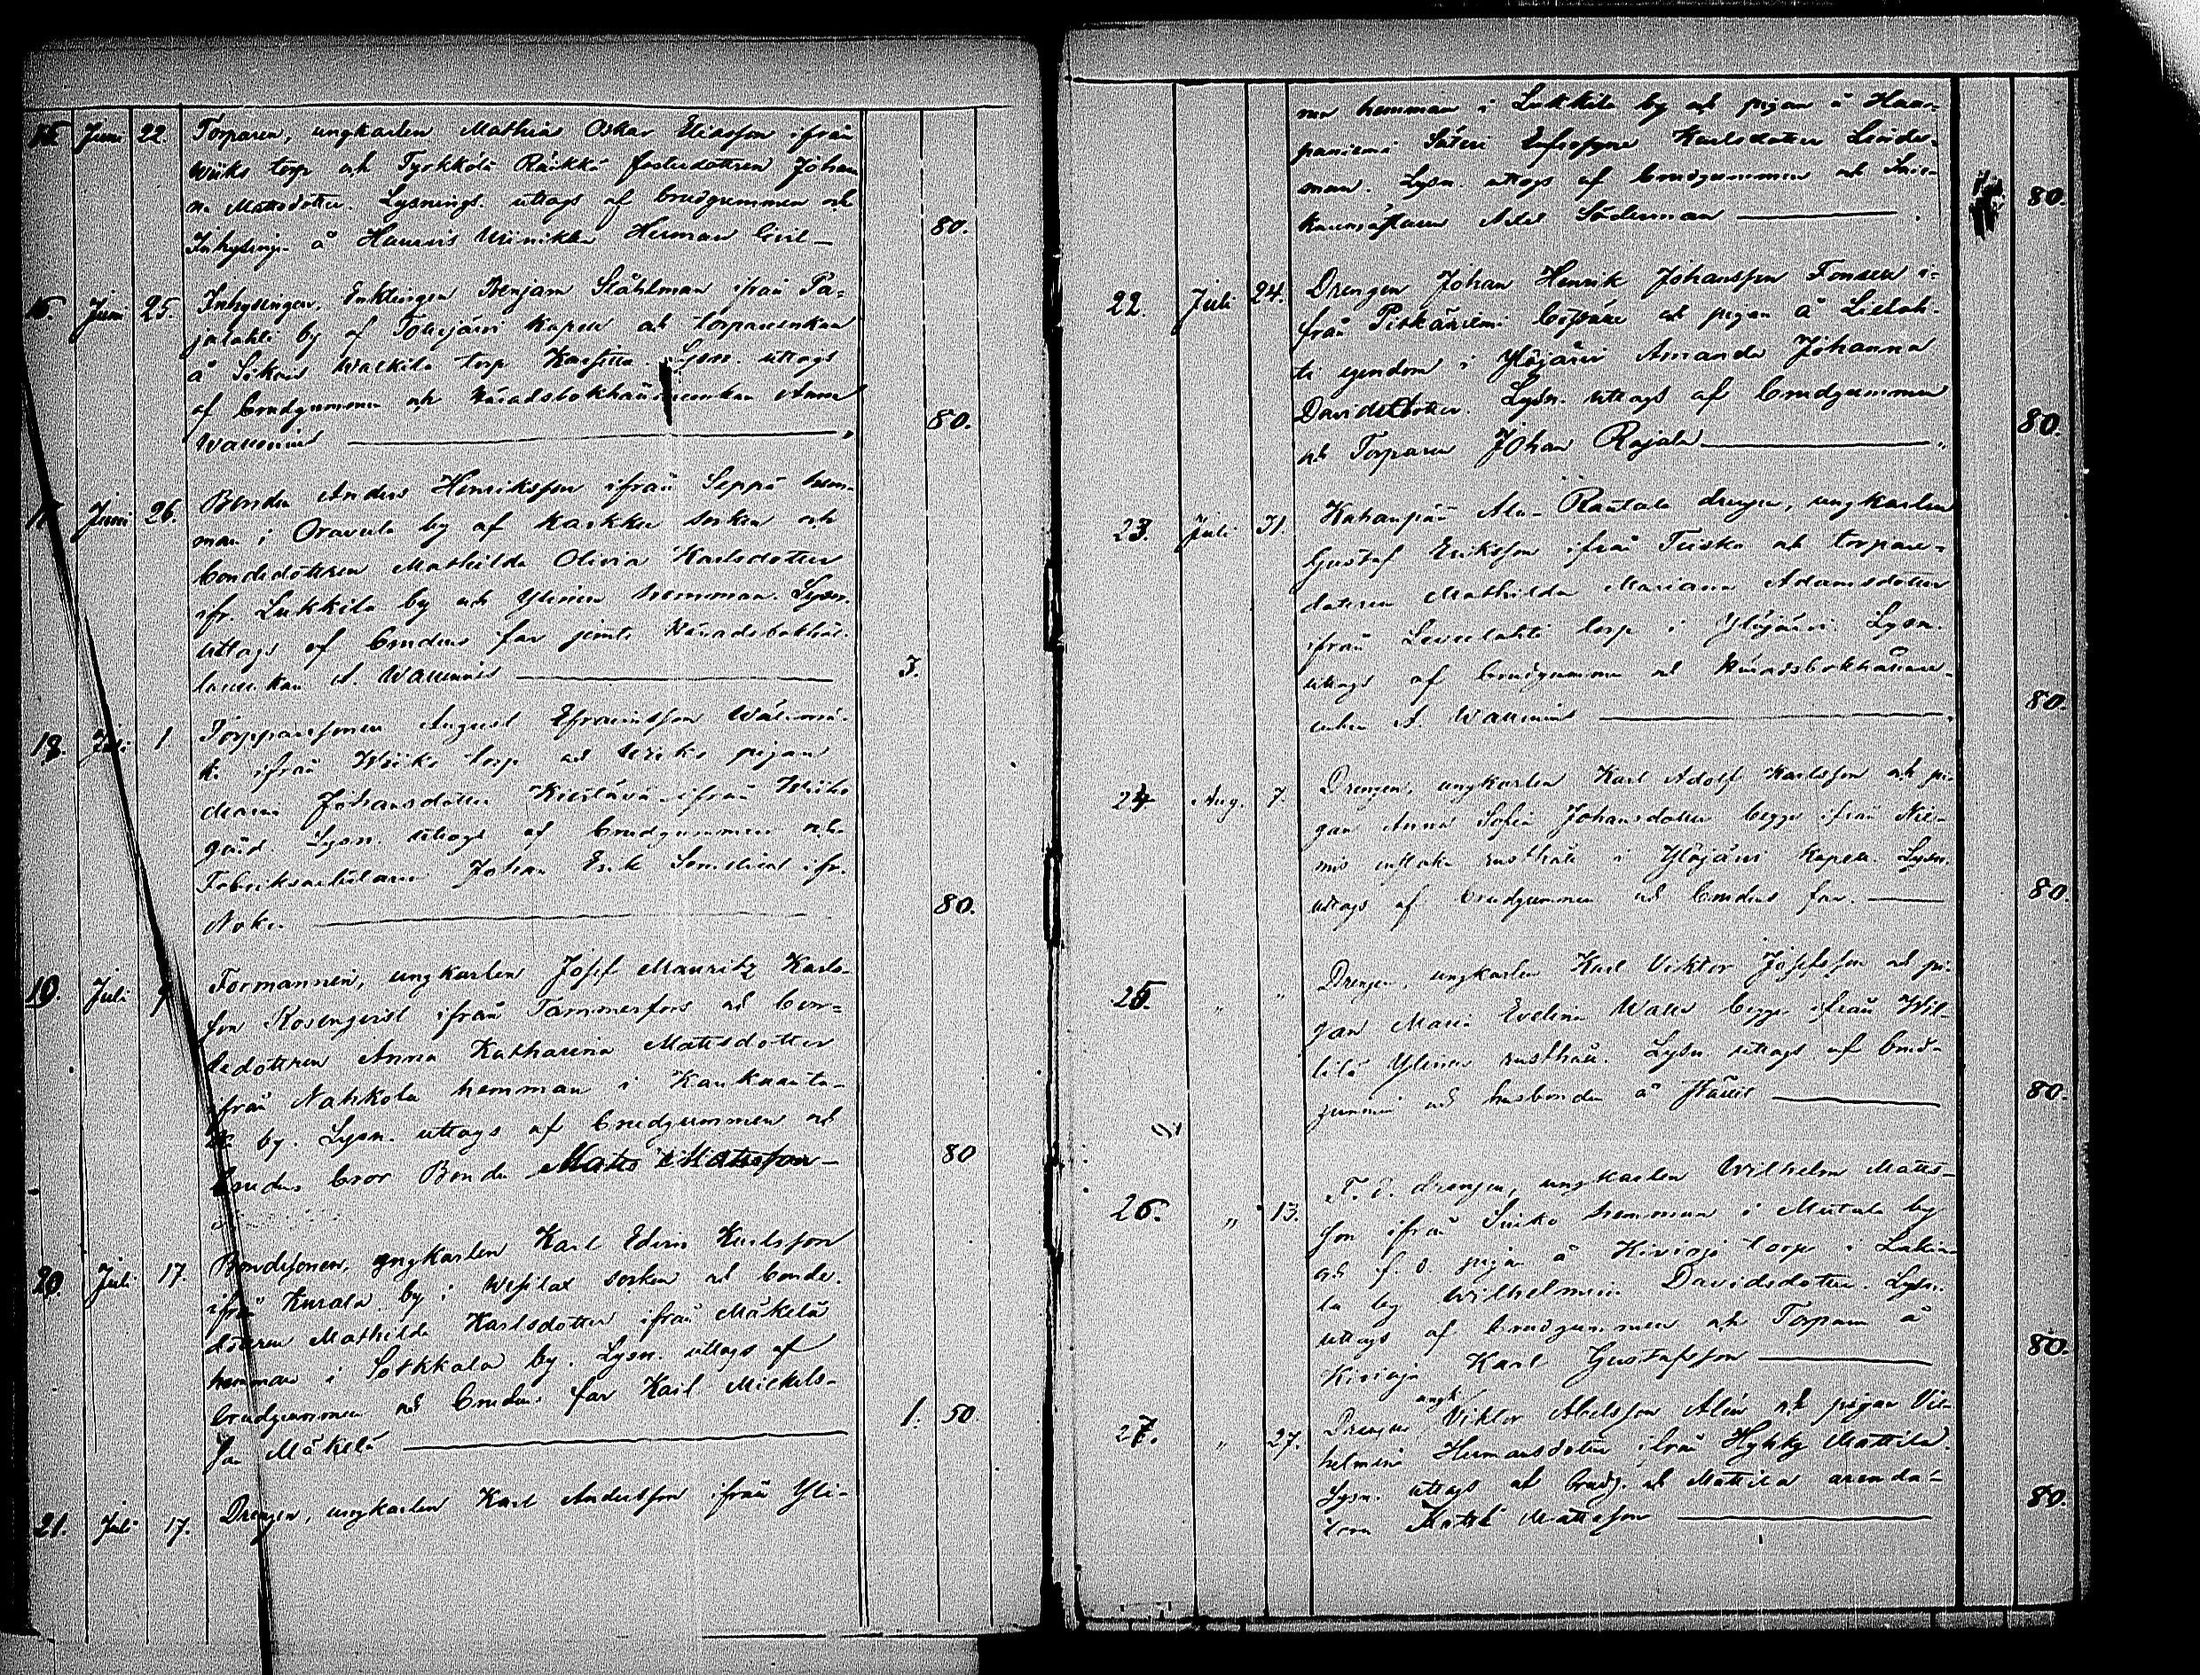 15. Juni 22. Torparen, ungkarlen Mathias Oskar Eliasson ifrån
Wiiks torp och Tyrkkölä Räikkä fosterdottren Johan-
na Mattsdotter. Lysnings. uttags af brudgummen och
Inhysing. å Haavis Heman 80.
16. Juni 25. Inhysingen, Enklingen Benjam Ståhlman ifrån Pa-
julahti by af Tottijärvi Kapell och torpareenkan
å Walkila torp Lysn. uttags
af brudgummen och Häradsbokhållareenkan Anna
Wallenius 80.
17. Juni 26. Bonden Anders Henriksson ifrån Seppä hem-
man i Oravula by af Karkku socken och
bondedottren Mathilda Olivia Karlsdotter
ifr. Lukkila by och Ylinen hemman. Lysn.
uttags af brudens far jemte Häradsbokhål-
lareenkan A. Wallenius 3.
18. Juli 1. Torpparesonen August Efraimsson
ifrån Wiiks torp och Wiiks pigan
Maria Johansdotter ifrån Wiiks
gård. Lysn. uttags af brudgummen och
Fabriksarbetaren Johan Erik ifr.
Nokia 80.
19. Juli 9. Formannen, ungkarlen Josef Mauritz Karls-
son Rosenqvist ifrån Tammerfors och bon-
dedottren Anna Katharina Mattsdotter
ifrån Nahkola hemman i Kankaanta-
ka by. Lysn. uttags af brudgummen och
brudens bror Bonden Matts Mattsson 80
20. Juli 17. Bondesonen, ungkarlen Karl Edvin Karlsson
ifrån Kurala by i Wesilax socken och bonde-
dottren Mathilda Karlsdotter ifrån Mäkelä
hemman i Sotkkala by. Lysn. uttags af
brudgummen och brudens far Karl Mickels-
son Mäkelä 1. 50.
21. Juli 17. Drengen, ungkarlen Karl Andersson ifrån Yli-
nen hemman i Lukkila by och pigan å Haa-
paniemi Säteri Eufrosyne Karlsdotter Linde-
man. Lysn. uttags af brudgummen och
Adel Söderman 80.
22. Juli 24. Drengen Johan Henrik Johansson Fonsen i-
från Pitkäniemi och pigan å Lielah-
ti egendom i Ylöjärvi Amanda Johanna
Davidsdotter. Lysn. uttags af brudgummen
och Torparen Johan Rajala 80.
23. Juli 31. Kahanpää Ala-Rautala drengen, ungkarlen
Gustaf Eriksson ifrån Teisko och torpare-
dottren Mathilda Mariana Adamsdotter
ifrån Leveelahti torp i Ylöjärvi. Lysn.
uttags af brudgummen och Häradsbokhållare-
enkan A. Wallenius 80.
24. Aug. 7. Drengen, ungkarlen Karl Adolf Karlsson och pi-
gan Anna Sofia Johansdotter begge ifrån Nie-
mis rusthåll i Ylöjärvi Kapell. Lysn.
uttags af brudgummen och brudens far. 80.
25. " " Drengen, ungkarlen Karl Viktor Josefsson och pi-
gan Maria Evelina Wallin begge ifrån Wil-
lilä Ylinen rusthåll. Lysn. uttags af brud-
gummen och husbonden å stället 80.
26. " 13. F. d. drengen, ungkarlen Wilhelm Matts-
son ifrån Siuko hemman i Mutala by
och f. d. pigan å Kirioja torp i Laki-
la by Wilhelmina Davidsdotter. Lysn.
uttags af brudgummen och Torparen å
Kirioja Karl Gustafsson 80.
27. " 27. Drengen ungk. Viktor Abelsson Alén och pigan Vil-
helmina Hermansdotter ifrån Hyhky Mattila.
Lysn. uttags af brudg. och Mattila arenda-
torn Matts Mattsson 80.